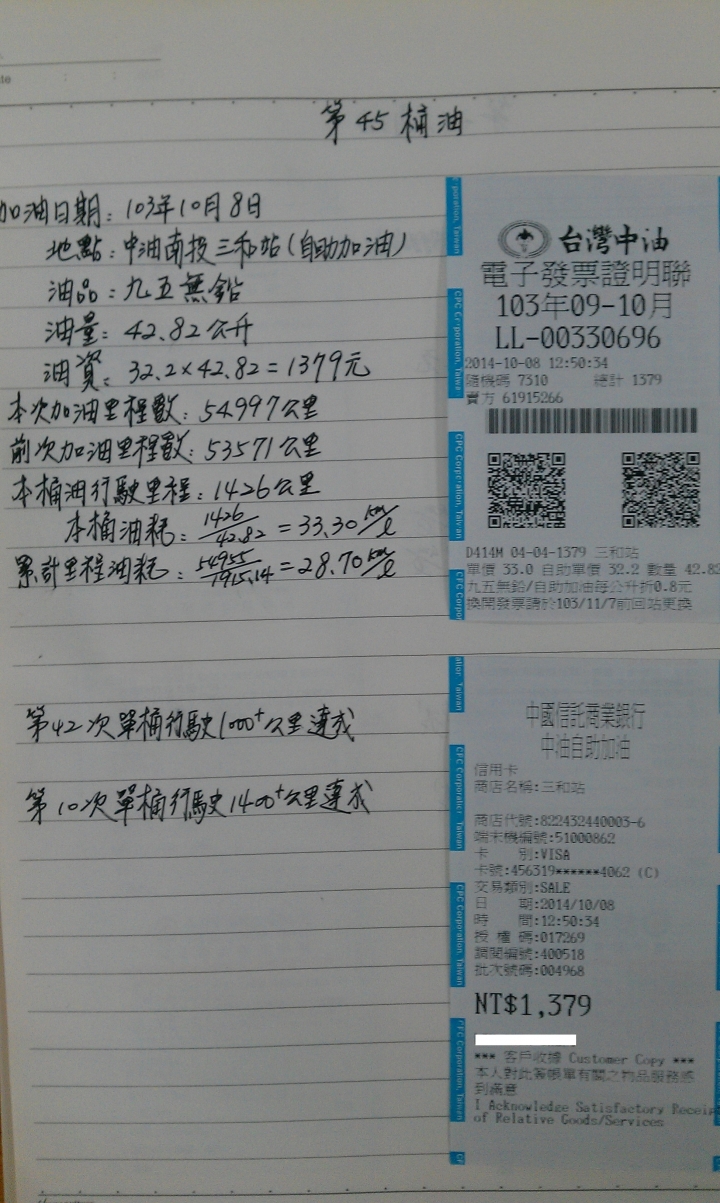 第45桶油
加油日期：103年10月8日
地點：中油南投三和站（自助加油）
油品：九五無鉛
油量：42.82公升
油資：32.2×42.82=1379元
本次加油里程數：54997公里
前次加油里程數：53571公里
本桶油行駛里程：1426公里
本桶油耗：1426/42.82=33.30km/l
累計里程油耗：54955/1915.14=28.70km/l
第42次單桶行駛1000+公里達成
第10次單桶行駛1400+公里達成
台灣中油
電子發票證明聯
103年09-10月
LL-00330696
2014-10-08 12:50:34
隨機碼 7310 總計 1379
賣方 61915266
D414M 04-04-1379 三和站
單價 33.0 自助單價 32.2 數量 42.82
九五無鉛/自助加油每公升折0.8元
換開發票請於103/11/7前回站更換
中國信託商業銀行
中油自助加油
信用卡
商店名稱:三和站
商店代號:822432440003-6
端末機編號:51000862
卡 別:VISA
卡號:456319******4062 (C)
交易類別:SALE
日 期:2014/10/08
時 間:12:50:34
授 權 碼:017269
調閱編號:400518
批次號碼:004968
NT$1,379
*** 客戶收據 Customer Copy ***
本人對此簽帳單有關之物品服務感
到滿意
I Acknowledge Satisfactory Receip
of Relative Goods/Services
CPC Corporation, Taiwan